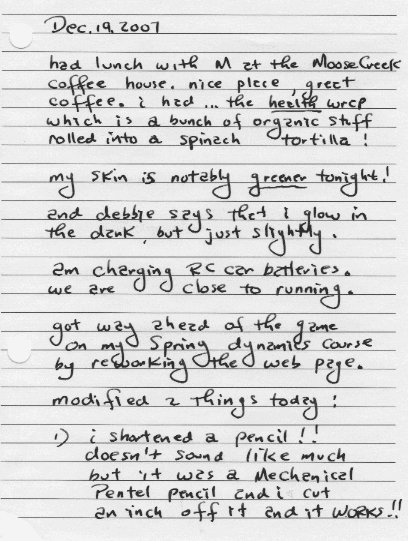 Dec. 19, 2007
had lunch with M at the Moose Creek
coffee house. nice place, great
coffee. i had ... the health wrap
which is a bunch of organic stuff
rolled into a spinach tortilla !
my skin is notably greener tonight !
and debbie says that i glow in
the dark, but just slightly.
am charging RC car batteries.
we are close to running.
got way ahead of the game
on my Spring dynamics course
by reworking the web page.
modified 2 things today :
1) i shortened a pencil !!
doesn't sound like much
but it was a Mechanical
Pentel pencil and i cut
an inch off it and it WORKS !!